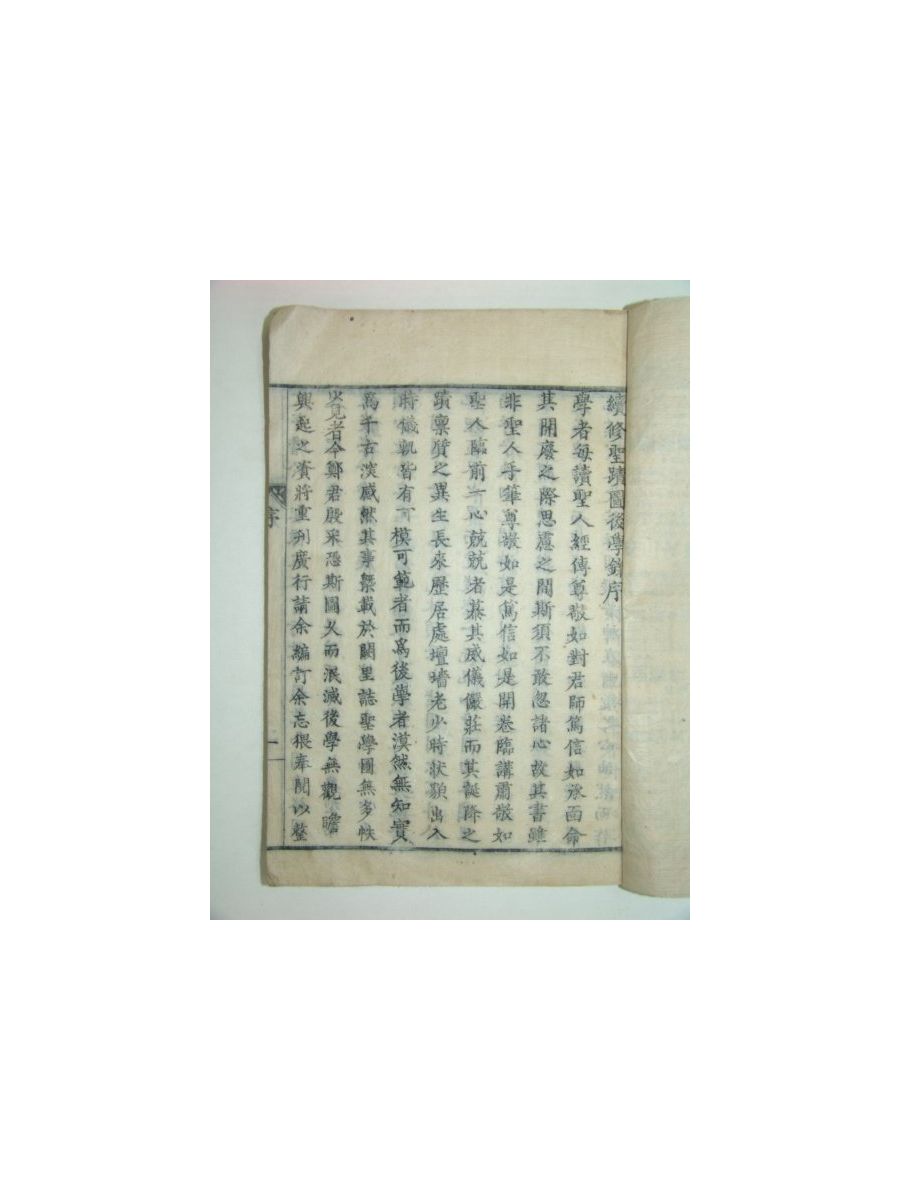 續修聖蹟圖後學錄序
學者每讀聖人經傳尊敬如對君師篤信如承面命
其開廢之際思慮之間斯須不敢忽諸心故其書雖
非聖人手華尊敬如是篤信如是開卷臨講肅敬如
聖人臨前一心兢兢者慕其威儀儼莊而其誕降之
蹟稟質之異生長來歷居處壇墻老少時狀顙出入
時儀軌皆有可模可範者而爲後學者漠然無知實
爲千古深慼然其事槩載於闕里誌聖學圖無多帙
見者今鄭君殷采恐斯圖久而泯滅後學無觀瞻
興起之資將重刑廣行請余編訂余忘猥奉閱以整
序
一